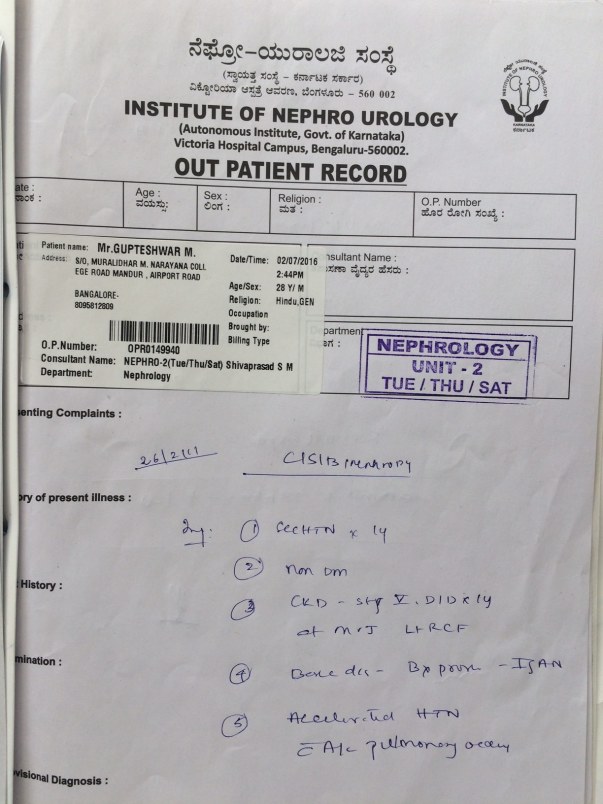 ನೆಫ್ರೋ-ಯುರಾಲಜಿ ಸಂಸ್ಥೆ
(ಸ್ವಾಯತ್ತ ಸಂಸ್ಥೆ - ಕರ್ನಾಟಕ ಸರ್ಕಾರ)
ವಿಕ್ಟೋರಿಯಾ ಆಸ್ಪತ್ರೆ ಆವರಣ, ಬೆಂಗಳೂರು - 560 002
INSTITUTE OF NEPHRO UROLOGY
(Autonomous Institute, Govt. of Karnataka)
Victoria Hospital Campus, Bengaluru-560002.
OUT PATIENT RECORD
ate :
Age :
ವಯಸ್ಸು:
Sex :
ಲಿಂಗ :
Religion :
ಮತ :
O.P. Number
ಹೊರ ರೋಗಿ ಸಂಖ್ಯೆ :
Patient name: Mr.GUPTESHWAR M.
Address: S/O, MURALIDHAR M. NARAYANA COLL
EGE ROAD MANDUR , AIRPORT ROAD
BANGALORE-
8095812809
Date/Time: 02/07/2016
2:44PM
Age/Sex: 28 Y/ M
Religion: Hindu,GEN
Occupation
Brought by:
Billing Type
O.P.Number: OPR0149940
Consultant Name: NEPHRO-2(Tue/Thu/Sat) Shivaprasad S M
Department: Nephrology
nsultant Name :
ವೈದ್ಯರ ಹೆಸರು :
Department
NEPHROLOGY
UNIT - 2
TUE / THU / SAT
enting Complaints :
ory of present illness :
① HTN x 1y
② Non DM
History :
③ CKD - V. x 1y
at
mination :
④ - Bx - IgAN
⑤ Accelerated HTN
pulmonary
visional Diagnosis :